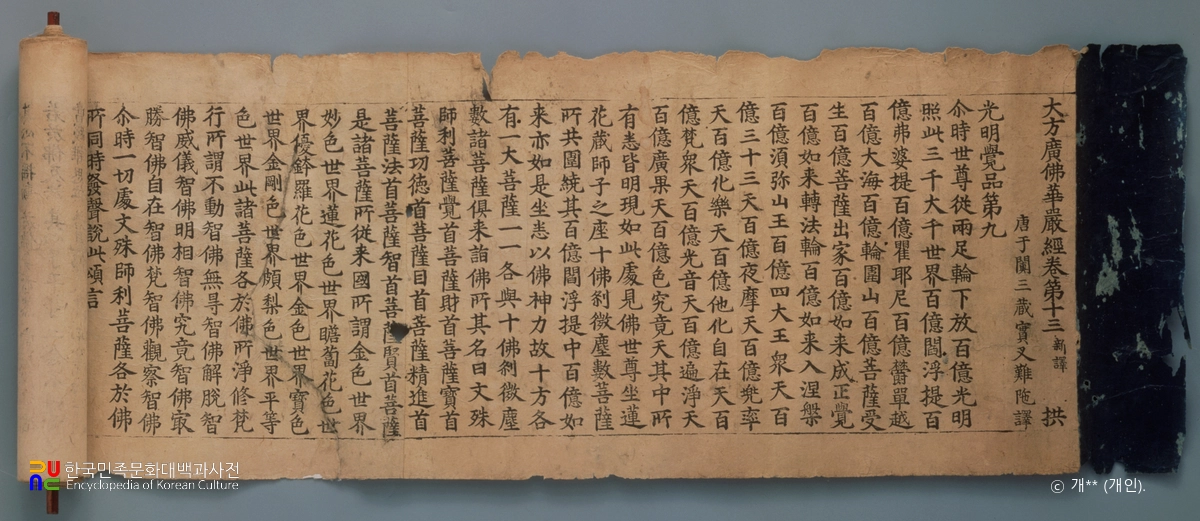 大方廣佛華嚴經卷第十三 新譯 拱
唐于闐三藏實叉難陁譯
光明覺品第九
尒時世尊從兩足輪下放百億光明
照此三千大千世界百億閻浮提百
億弗婆提百億瞿耶尼百億欝單越
百億大海百億輪圍山百億菩薩受
生百億菩薩出家百億如来成正覺
百億如来轉法輪百億如来入涅槃
百億湏弥山王百億四大王衆天百
億三十三天百億夜摩天百億兠率
天百億化樂天百億他化自在天百
億梵衆天百億光音天百億遍淨天
百億廣果天百億色究竟天其中所
有悉皆明現如此處見佛世尊坐蓮
花蔵師子之座十佛刹微塵數菩薩
所共圍繞其百億閻浮提中百億如
来亦如是坐悉以佛神力故十方各
有一大菩薩一一各與十佛刹微塵
數諸菩薩俱来詣佛所其名曰文殊
師利菩薩覺首菩薩財首菩薩寶首
菩薩功徳首菩薩目首菩薩精進首
菩薩法首菩薩智首菩薩賢首菩薩
是諸菩薩所從来國所謂金色世界
妙色世界蓮花色世界瞻蔔花色世
界優鉢羅花色世界金色世界寶色
世界金剛色世界頗梨色世界平等
色世界此諸菩薩各於佛所淨修梵
行所謂不動智佛無㝵智佛解脫智
佛威儀智佛明相智佛究竟智佛㝡
勝智佛自在智佛梵智佛觀察智佛
尒時一切處文殊師利菩薩各於佛
所同時發聲說此頌言
한국민족문화대백과사전
Encyclopedia of Korean Culture
ⓒ 개** (개인).